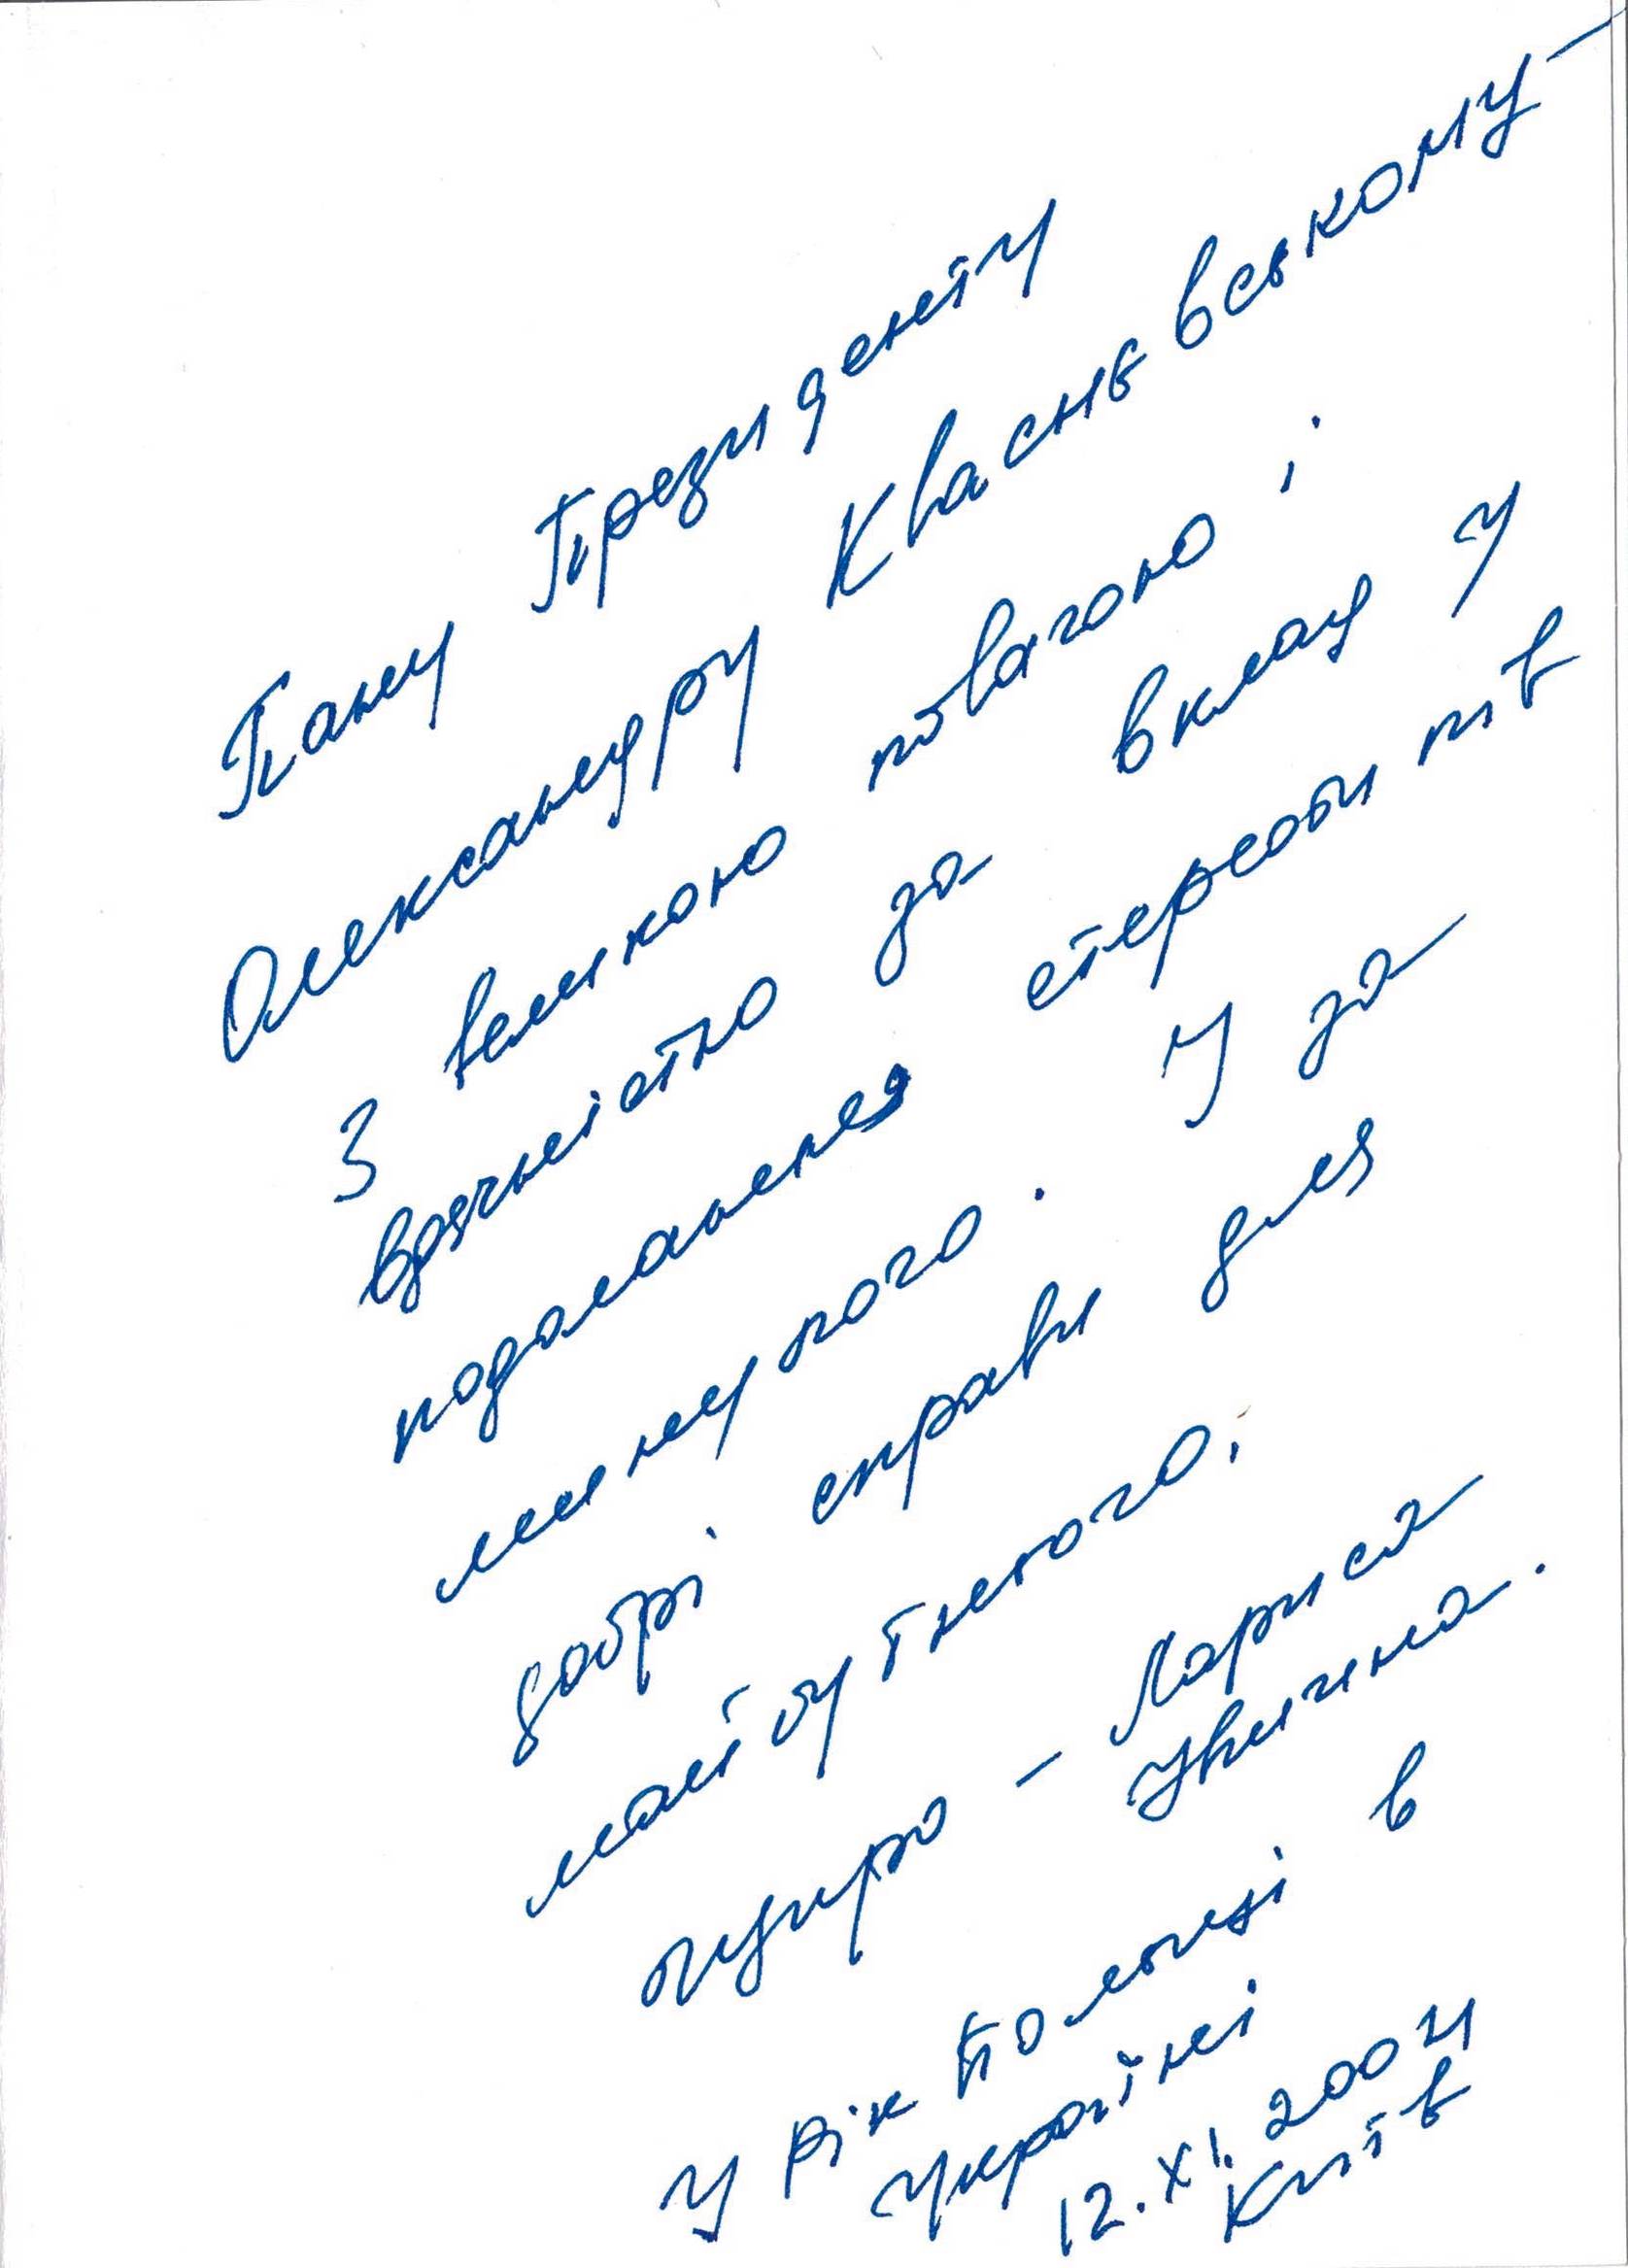 Пану Президенту
Олександру Квасневському –
З великою повагою і
вдячністю за вклад у
подолання стереотипів
минулого. У за
добрі справи для
майбутнього.
щиро – Лариса
Івшина.
У рік Польщі в
Україні
12.XI.2004
Київ